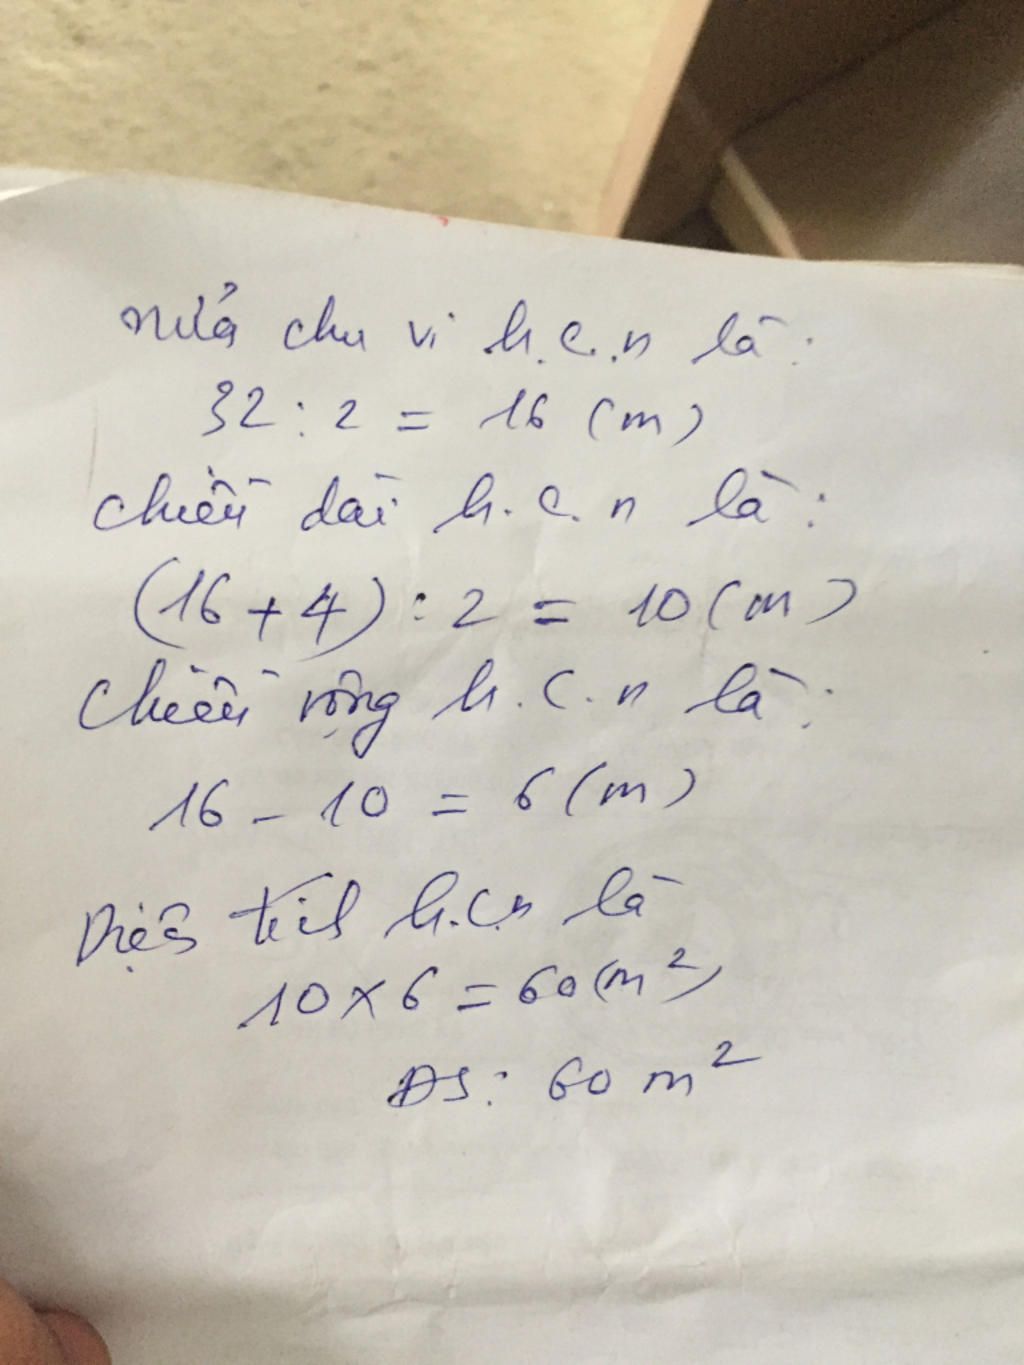 nửa chu vi h.c.n là:
32 : 2 = 16 (m)
chiều dài h.c.n là:
(16 + 4) : 2 = 10 (m)
Chiều rộng h.c.n là:
16 - 10 = 6 (m)
Diện tích h.c.n là
10 x 6 = 60 (m²)
ĐS: 60 m²